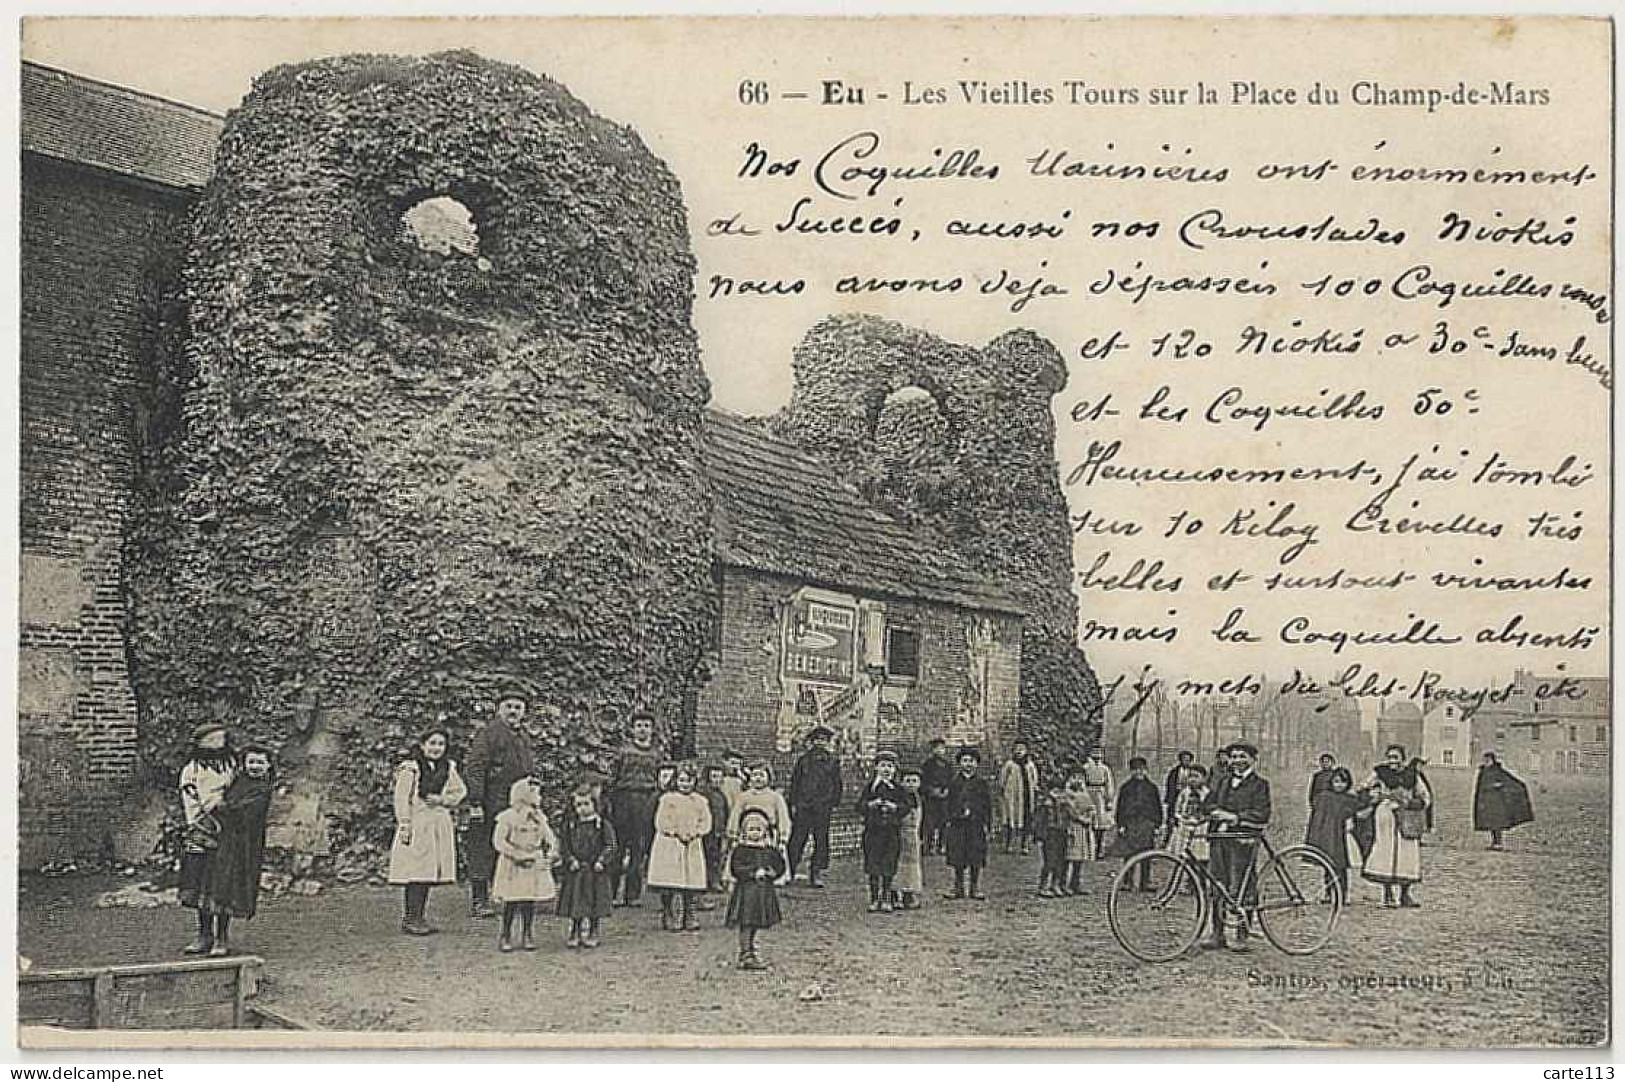 66 — Eu - Les Vieilles Tours sur la Place du Champ-de-Mars
Nos Coquilles Marinières ont énormément
de Succés, aussi nos Croustades Niokis
nous avons deja dépasséir 100 Coquilles
et 120 Niokis a 30c - sans
et les Coquilles 50c-
Heureusement, j'ai tombé
sur 10 Kilog Crévettes très
belles et surtout vivantes
mais la Coquille absente
j'y mets du
BENEDICTINE
Santos, opérateur, à Eu
carte113